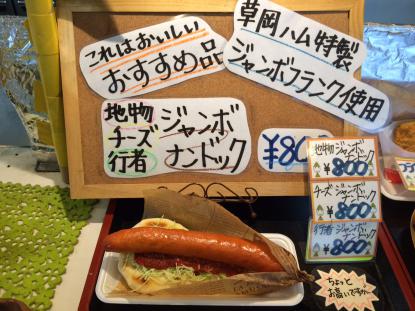 これはおいしい
おすすめ品
草岡ハム特製
ジャンボフランク使用
地物 ジャンボ
チーズ
行者 ナンドック
¥800
地物ジャンボナンドック
¥800
チーズジャンボナンドック
¥800
行者ジャンボナンドック
¥800
ちょっと
お高いですが…